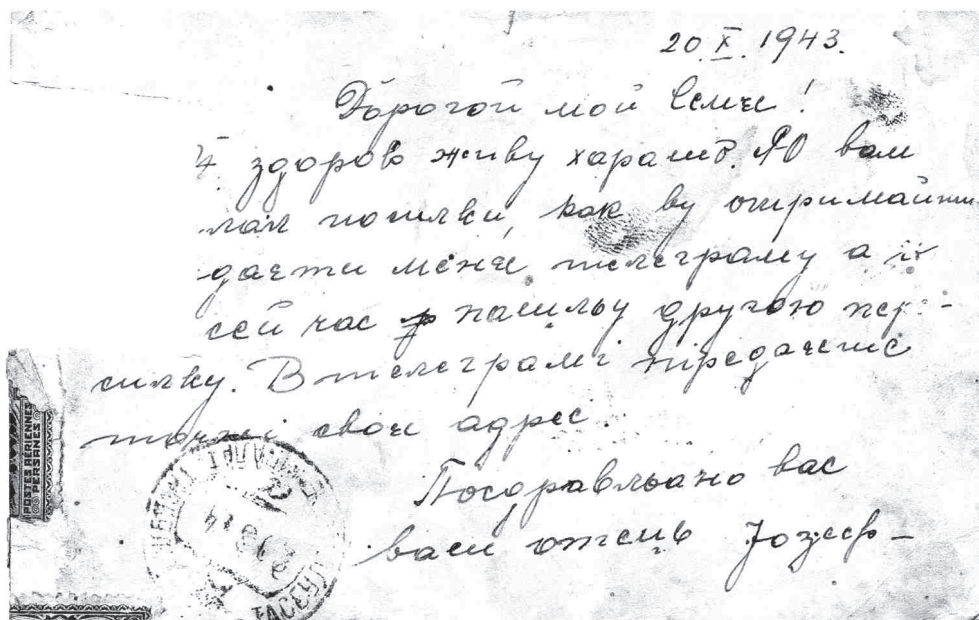 20.X.1943.
Дорогой мой Семе!
здоров живу харашо. Я вам
лал посилки, как ву отримайти
дайти мене телеграму а
сей час я пасилью другою пер-
силку. В телеграмі предайтис
точні свое адрес.
Поздравльаю вас
ваш отець Јозеф-
POSTES AÉRIENNES
PERSANES